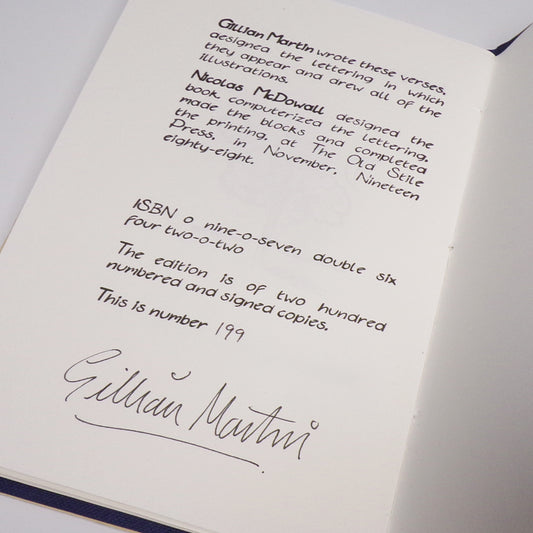 Gillian Martin wrote these verses,
designed the lettering in which
they appear and drew all of the
illustrations.
Nicolas McDowall designed the
book, computerized the lettering,
made the blocks and completed
the printing, at The Old Stile
Press, in November, Nineteen
eighty-eight.
ISBN o nine-o-seven double six
four two-o-two
The edition is of two hundred
numbered and signed copies.
This is number 199
Gillian Martin